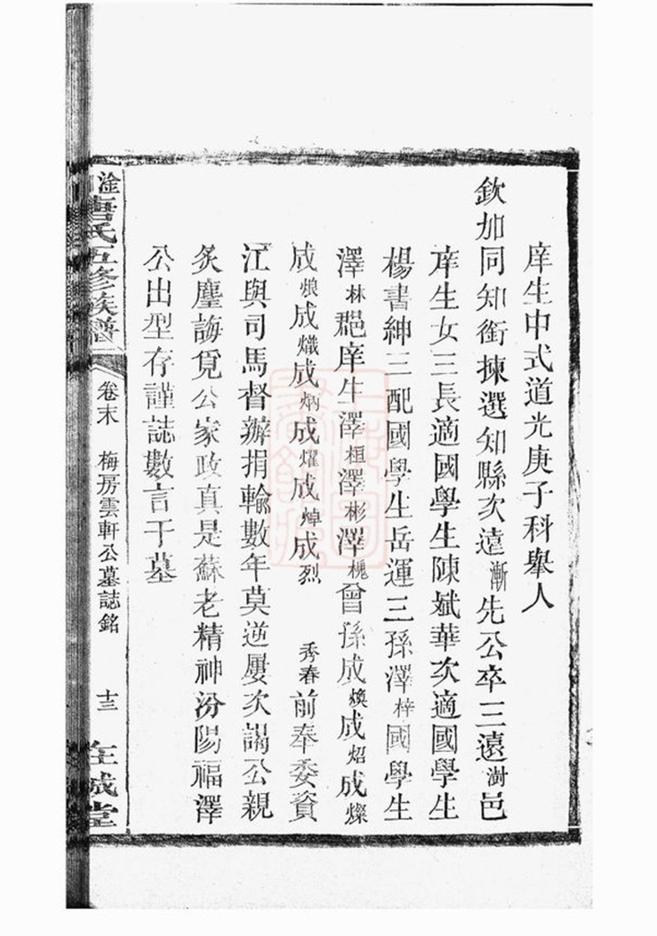 庠生中式道光庚子科舉人
欽加同知銜揀選知縣次遠漸先公卒三遠澍邑
庠生女三長適國學生陳斌華次適國學生
楊書紳三配國學生岳運三孫澤梓國學生
澤林郡庠生澤桓澤彬澤槐曾孫成煥成炤成燦
成烺成熾成炳成燿成焯成烈 秀春前奉委資
江與司馬督辦捐輸數年莫逆屢次謁公親
炙塵誨覓公家政真是蘇老精神汾陽福澤
公出型存謹誌數言于墓
淦唐氏五修族譜 卷末 梅房雲軒公墓誌銘 十三 在城堂